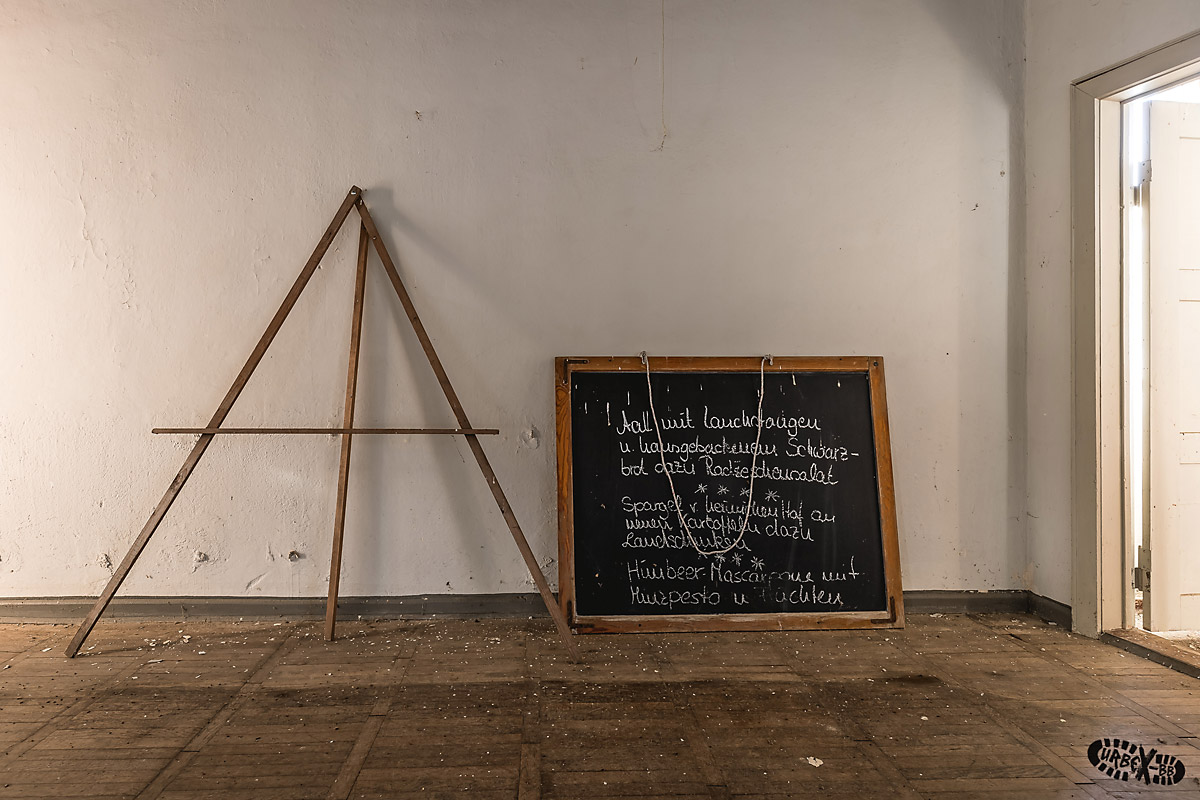 Aal mit Lauchstangen
u. hausgebackenem Schwarz-
brot dazu Radieschensalat
* * *
Spargel v. heimischen Hof an
neuen Kartoffeln dazu
Landschinken
* * *
Himbeer-Mascarpone mit
Minzpesto u. Früchten
URBEX-BB